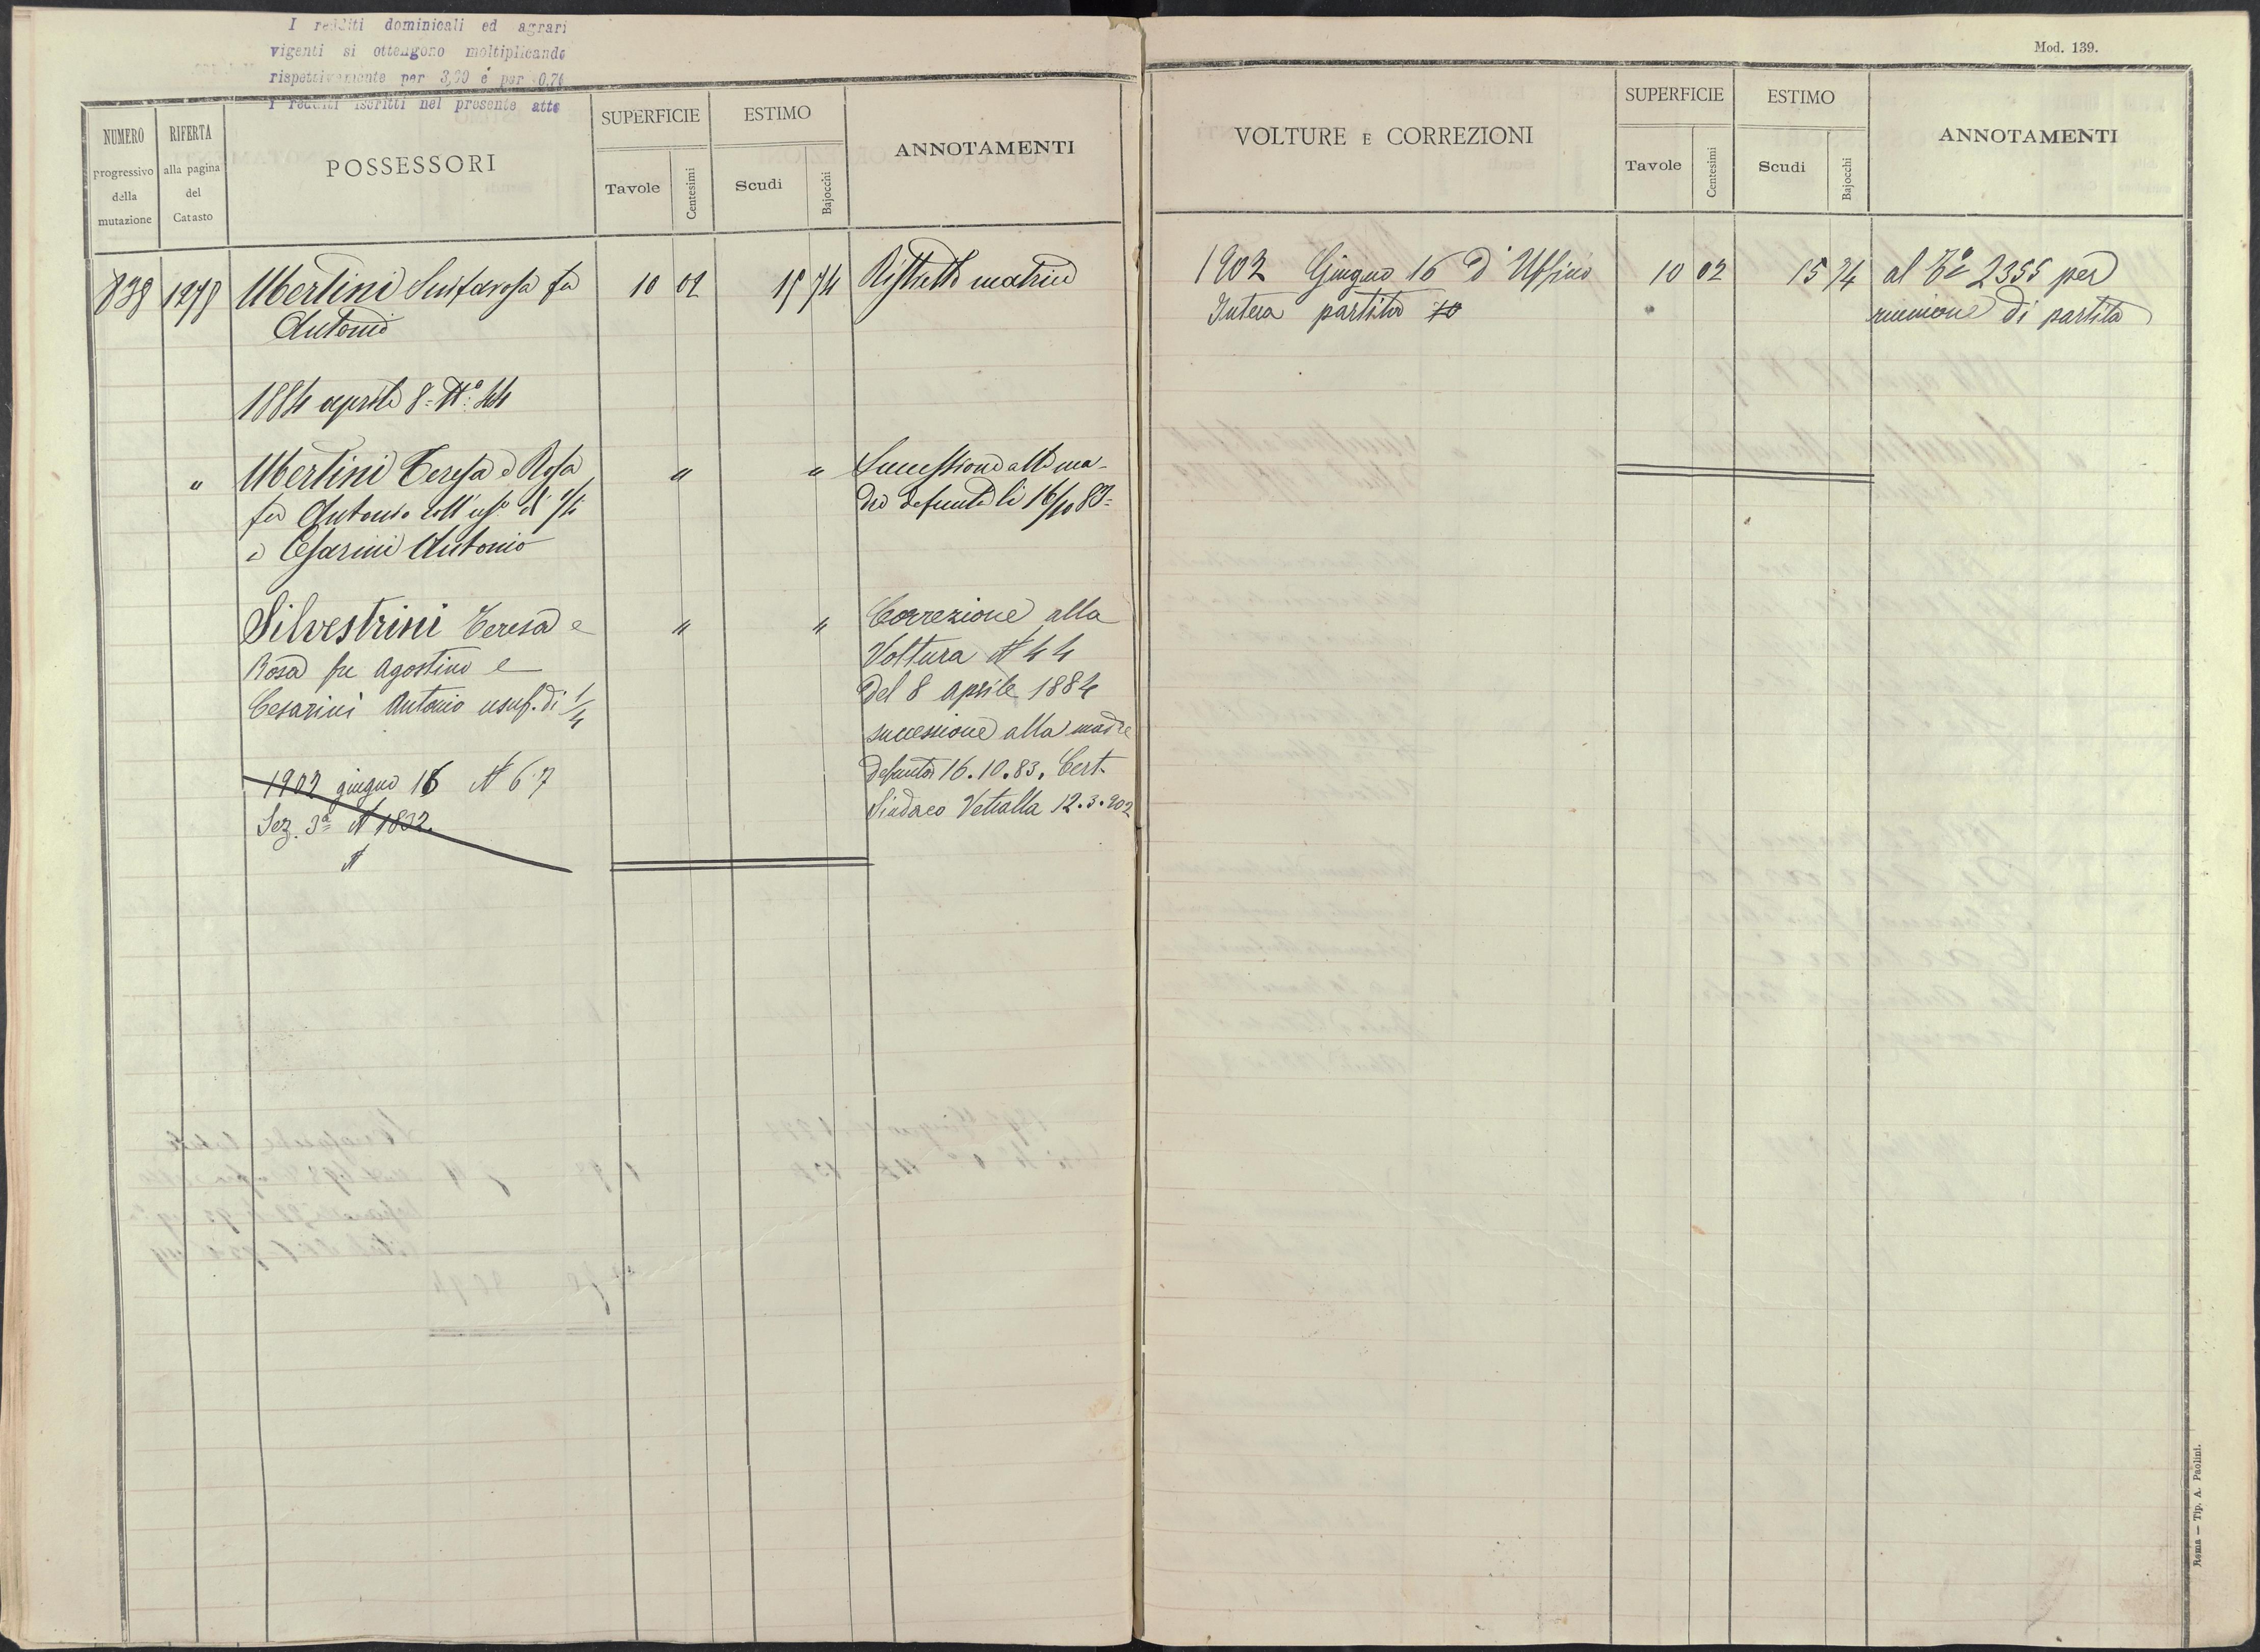 I redditi dominicali ed agrari
vigenti si ottengono moltiplicando
rispettivamente per 3,20 e per 0,70
I redditi iscritti nel presente atto
NUMERO
progressivo
della
mutazione
RIFERTA
alla pagina
del
Catasto
POSSESSORI
SUPERFICIE
Tavole
Centesimi
ESTIMO
Scudi
Bajocchi
ANNOTAMENTI
838 1278 Ubertini fu 10 02 15 74 Ristretto matrice
Antonio
1884 aprile 8 = N.° 44
" Ubertini Teresa e Rosa " " Successione alla ma-
fu Antonio coll'usf.° di 1/4 dre defunta li 16/10 83 =
a Cesarini Antonio
Silvestrini Teresa e " " Correzione alla
Rosa fu Agostino e Voltura N 44
Cesarini Antonio usuf. di 1/4 del 8 Aprile 1884
successione alla madre
1902 giugno 16 N 67 defunta 16.10.83. Cert.
Sez. 3ª N 1832. Sindaco Vetralla 12.3.902
N
Mod. 139.
VOLTURE E CORREZIONI
SUPERFICIE
Tavole
Centesimi
ESTIMO
Scudi
Bajocchi
ANNOTAMENTI
1902 Giugno 16 d'Ufficio 10 02 15 74 al 2355 per
Intera partita riunione di partita
Roma — Tip. A. Paolini.